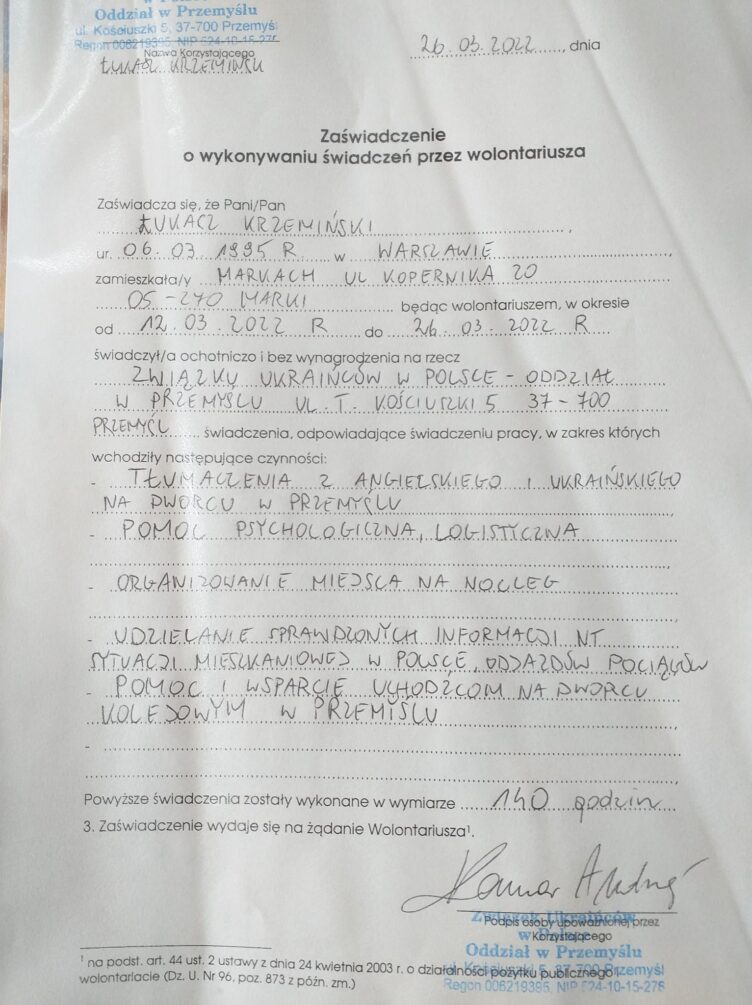 Oddział w Przemyślu
ul. Kościuszki 5, 37-700 Przemyśl
Regon 006219395, NIP 524-10-15-276
Nazwa Korzystającego
ŁUKASZ KRZEMIŃSKI
26.03.2022, dnia
Zaświadczenie
o wykonywaniu świadczeń przez wolontariusza
Zaświadcza się, że Pani/Pan
ŁUKACZ KRZEMIŃSKI,
ur. 06.03.1995 R. w WARSZAWIE,
zamieszkała/y MARKACH UL KOPERNIKA 20
05-270 MARKI będąc wolontariuszem, w okresie
od 12.03.2022 R do 26.03.2022 R
świadczył/a ochotniczo i bez wynagrodzenia na rzecz
ZWIĄZKU UKRAIŃCÓW W POLSCE - ODDZIAŁ
W PRZEMYŚLU UL. T. KOŚCIUSZKI 5 37-700
PRZEMYŚL świadczenia, odpowiadające świadczeniu pracy, w zakres których
wchodziły następujące czynności:
- TŁUMACZENIA Z ANGIELSKIEGO I UKRAIŃSKIEGO
NA DWORCU W PRZEMYŚLU,
- POMOC PSYCHOLOGICZNA, LOGISTYCZNA
- ORGANIZOWANIE MIEJSCA NA NOCLEG
- UDZIELANIE SPRAWDZONYCH INFORMACJI NT
SYTUACJI MIESZKANIOWEJ W POLSCE, ODJAZDÓW POCIĄGÓW
- POMOC I WSPARCIE UCHODŹCOM NA DWORCU
KOLEJOWYM W PRZEMYŚLU
-
Powyższe świadczenia zostały wykonane w wymiarze 140 godzin
3. Zaświadczenie wydaje się na żądanie Wolontariusza¹.
Podpis osoby upoważnionej przez
Korzystającego
Związek Ukraińców
w Polsce
Oddział w Przemyślu
Regon 006219395, NIP 524-10-15-276
¹ na podst. art. 44 ust. 2 ustawy z dnia 24 kwietnia 2003 r. o działalności pożytku publicznego i
wolontariacie (Dz. U. Nr 96, poz. 873 z późn. zm.)